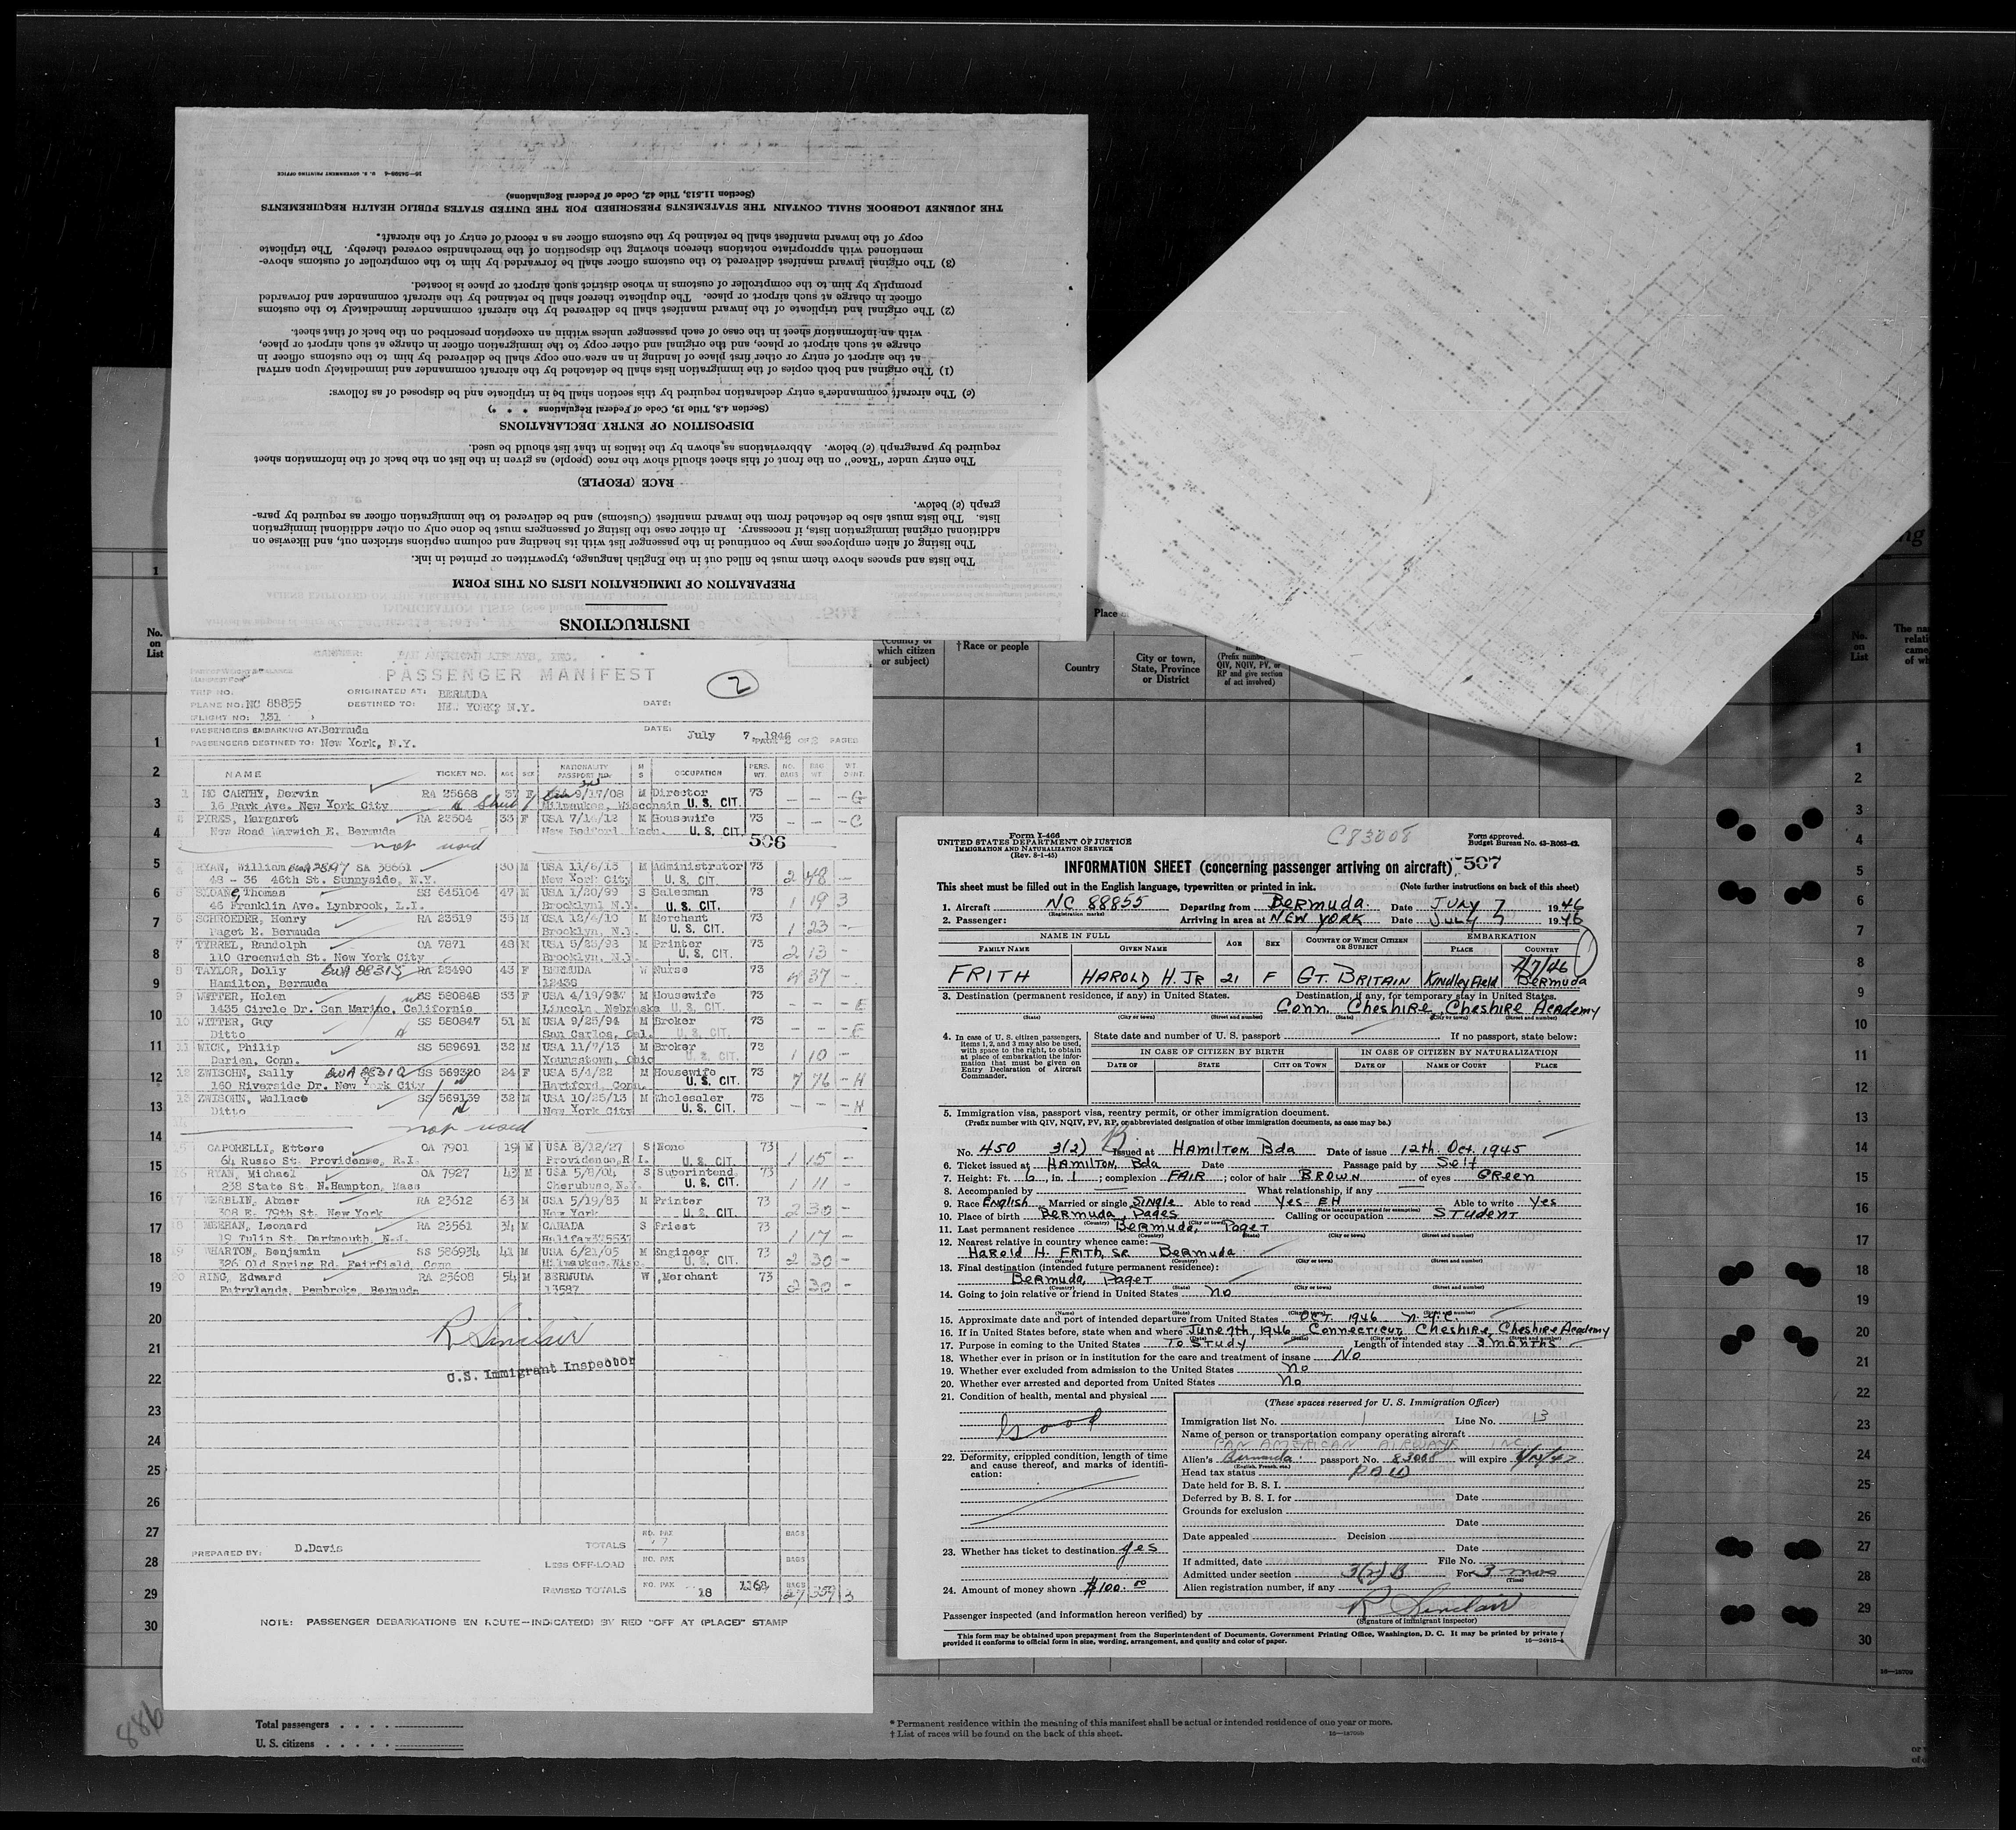 INSTRUCTIONS
PREPARATION OF IMMIGRATION LISTS ON THIS FORM
The lists and spaces above them must be filled out in the English language, typewritten or printed in ink.
The listing of alien employees may be continued in the passenger list with its heading and column captions stricken out, and likewise on
additional original immigration lists, if necessary. In either case the listing of passengers must be done only on other additional immigration
lists. The lists must also be detached from the inward manifest (Customs) and be delivered to the immigration officer as required by para-
graph (c) below.
RACE (PEOPLE)
The entry under "Race" on the front of this sheet should show the race (people) as given in the list on the back of the information sheet
required by paragraph (c) below. Abbreviations as shown by the italics in that list should be used.
DISPOSITION OF ENTRY DECLARATIONS
(Section 4.8, Title 19, Code of Federal Regulations * * *)
(c) The aircraft commander's entry declaration required by this section shall be in triplicate and be disposed of as follows:
(1) The original and both copies of the immigration lists shall be detached by the aircraft commander and immediately upon arrival
at the airport of entry or other first place of landing in an area one copy shall be delivered by him to the customs officer in
charge at such airport or place, and the original and other copy to the immigration officer in charge at such airport or place,
with an information sheet in the case of each passenger unless within an exception prescribed on the back of that sheet.
(2) The original and triplicate of the inward manifest shall be delivered by the aircraft commander immediately to the customs
officer in charge at such airport or place. The duplicate thereof shall be retained by the aircraft commander and forwarded
promptly by him to the comptroller of customs in whose district such airport or place is located.
(3) The original inward manifest delivered to the customs officer shall be forwarded by him to the comptroller of customs above-
mentioned with appropriate notations thereon showing the disposition of the merchandise covered thereby. The triplicate
copy of the inward manifest shall be retained by the customs officer as a record of entry of the aircraft.
THE JOURNEY LOGBOOK SHALL CONTAIN THE STATEMENTS PRESCRIBED FOR THE UNITED STATES PUBLIC HEALTH REQUIREMENTS
(Section 11.513, Title 42, Code of Federal Regulations)
PAN AMERICAN AIRWAYS, INC.
PASSENGER MANIFEST 2
TRIP NO. ORIGINATED AT: BERMUDA
PLANE NO: NC 88855 DESTINED TO: NEW YORK, N.Y. DATE:
FLIGHT NO: 131
PASSENGERS EMBARKING AT: Bermuda DATE: July 7, 1946
PASSENGERS DESTINED TO: New York, N.Y. PAGE 2 OF 2 PAGES
NAME TICKET NO. AGE SEX NATIONALITY PASSPORT NO. M S OCCUPATION PERS. WT. NO. BAGS BAG WT
MC CARTHY, Dervin RA 25668 37 F 9/17/08 M Director 73 - - - G
16 Park Ave. New York City Milwaukee, Wisconsin U. S. CIT.
PYRES, Margaret RA 23504 33 F USA 7/16/12 M Housewife 73 - - - C
New Road Warwich E. Bermuda U. S. CIT.
not used 506
RYAN, William SA 38661 30 M USA 11/6/15 M Administrator 73 2 48 -
48 - 36 46th St. Sunnyside, N.Y. New York City U. S. CIT.
SLOANE, Thomas SS 645104 47 M USA 1/30/99 S Salesman 73 1 19 3
46 Franklin Ave. Lynbrook, L.I. Brooklyn, N.Y. U. S. CIT.
SCHROEDER, Henry RA 23519 35 M USA 12/4/10 M Merchant 73 1 23 -
Paget E. Bermuda Brooklyn, N.Y. U. S. CIT.
TYRREL, Randolph OA 7871 48 M USA 5/23/98 M Printer 73 2 13 -
110 Greenwich St. New York City Brooklyn, N.Y. U. S. CIT.
TAYLOR, Dolly RA 23490 43 F BERMUDA W Nurse 73 37 -
Hamilton, Bermuda 12438
WITTER, Helen SS 580848 53 F USA M Housewife 73 - - - E
1435 Circle Dr. San Marino, California Lincoln, Nebraska U. S. CIT.
WITTER, Guy SS 580847 51 M USA 9/25/94 M Broker 73 - - - E
Ditto San Carlos, Cal. U. S. CIT.
WICK, Philip SS 589691 32 M USA 11/7/13 M Broker 73 1 10 -
Darien, Conn. Youngstown, Ohio U. S. CIT.
ZWISOHN, Sally SS 569320 24 F USA 5/4/22 M Housewife 73 7 76 - H
160 Riverside Dr. New York City Hartford, Conn. U. S. CIT.
ZWISOHN, Wallace SS 569139 32 M USA 10/25/13 M Wholesaler 73 - - - H
Ditto New York City U. S. CIT.
not used
CAPORELLI, Ettore OA 7901 19 M USA 8/12/27 S None 73 1 15 -
64 Russo St. Providence, R.I. Providence, R I. U. S. CIT.
RYAN, Michael OA 7927 43 M USA 5/8/04 S Superintend. 73 1 11 -
238 State St. N.Hampton, Mass Cherubusc, N.Y. U. S. CIT.
WERBLIN, Abner RA 23612 63 M USA 5/19/83 M Printer 73 2 30 -
308 E. 79th St. New York New York U. S. CIT.
MEEHAN, Leonard RA 23561 34 M CANADA S Priest 73 1 17 -
19 Tulin St. Dartmouth, N.S. Halifax 375537
WHARTON, Benjamin SS 586934 41 M USA 6/21/05 M Engineer 73 2 30 -
326 Old Spring Rd. Fairfield, Conn Milwaukee, Wisc. U. S. CIT.
RING, Edward RA 23608 54 M BERMUDA W Merchant 73 2 30 -
Fairylands, Pembroke, Bermuda 13587
R Sinclair
U.S. Immigrant Inspector
PREPARED BY: D.Davis
TOTALS NO. PAX BAGS
LESS OFF-LOAD NO. PAX BAGS
REVISED TOTALS NO. PAX 18 BAGS 27 359 3
NOTE: PASSENGER DEBARKATIONS EN ROUTE—INDICATE(D) BY RED "OFF AT (PLACE)" STAMP
886
Total passengers . . . . .
U. S. citizens . . . . .
No. on List
which citizen or subject)
† Race or people
Country
City or town, State, Province or District
QIV, NQIV, PV, or RP and give section of act involved)
* Permanent residence within the meaning of this manifest shall be actual or intended residence of one year or more.
† List of races will be found on the back of this sheet.
C83008
UNITED STATES DEPARTMENT OF JUSTICE Form I-466 Form approved.
IMMIGRATION AND NATURALIZATION SERVICE (Rev. 8-1-45) Budget Bureau No. 43-R065-42.
INFORMATION SHEET (concerning passenger arriving on aircraft) 507
This sheet must be filled out in the English language, typewritten or printed in ink. (Note further instructions on back of this sheet)
1. Aircraft NC 88855 (Registration marks) Departing from Bermuda Date JULY 7 1946
2. Passenger: Arriving in area at NEW YORK Date JULY 7 1946
NAME IN FULL AGE SEX COUNTRY OF WHICH CITIZEN OR SUBJECT EMBARKATION
FAMILY NAME GIVEN NAME PLACE COUNTRY
FRITH HAROLD H. JR 21 F GT. BRITAIN Kindley Field 7/7/46 Bermuda
3. Destination (permanent residence, if any) in United States. Destination, if any, for temporary stay in United States.
(State) (City or town) (Street and number) Conn. Cheshire, Cheshire Academy
4. In case of U. S. citizen passengers, items 1, 2, and 3 may also be used, with space to the right, to obtain at place of embarkation the information that must be given on Entry Declaration of Aircraft Commander.
State date and number of U. S. passport If no passport, state below:
IN CASE OF CITIZEN BY BIRTH IN CASE OF CITIZEN BY NATURALIZATION
DATE OF STATE CITY OR TOWN DATE OF NAME OF COURT PLACE
5. Immigration visa, passport visa, reentry permit, or other immigration document.
(Prefix number with QIV, NQIV, PV, RP, or abbreviated designation of other immigration documents, as case may be.)
No. 450 3(2) B Issued at Hamilton Bda Date of issue 12th. Oct. 1945
6. Ticket issued at Hamilton, Bda Date Passage paid by Self
7. Height: Ft. 6, in. 1; complexion FAIR; color of hair BROWN of eyes GReen
8. Accompanied by What relationship, if any
9. Race English Married or single Single Able to read Yes - EH Able to write Yes
10. Place of birth Bermuda, Pages Calling or occupation STudent
11. Last permanent residence Bermuda, Paget
12. Nearest relative in country whence came:
Harold H. FRITH, SR Bermuda
13. Final destination (intended future permanent residence):
Bermuda, Paget
14. Going to join relative or friend in United States no
15. Approximate date and port of intended departure from United States OCT. 1946 N.Y.C.
16. If in United States before, state when and where June 7th, 1946 Connecticut, Cheshire, Cheshire Academy
17. Purpose in coming to the United States To Study Length of intended stay 3 months
18. Whether ever in prison or in institution for the care and treatment of insane No
19. Whether ever excluded from admission to the United States no
20. Whether ever arrested and deported from United States No
21. Condition of health, mental and physical
Good
22. Deformity, crippled condition, length of time and cause thereof, and marks of identification:
23. Whether has ticket to destination yes
24. Amount of money shown $100.00
(These spaces reserved for U. S. Immigration Officer)
Immigration list No. 1 Line No. 13
Name of person or transportation company operating aircraft
PAN AMERICAN AIRWAYS INC
Alien's Bermuda passport No. 83008 will expire
Head tax status PAID
Date held for B. S. I.
Deferred by B. S. I. for Date
Grounds for exclusion
Date
Date appealed Decision
Date
If admitted, date File No.
Admitted under section 3(2) B For 3 mos
Alien registration number, if any
Passenger inspected (and information hereon verified) by R Sinclair
(Signature of Immigrant Inspector)
This form may be obtained upon prepayment from the Superintendent of Documents, Government Printing Office, Washington, D. C. It may be printed by private
provided it conforms to official form in size, wording, arrangement, and quality and color of paper.